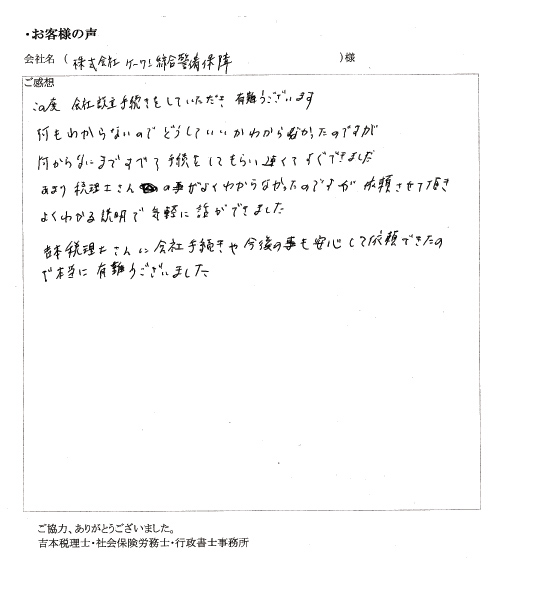 ・お客様の声
会社名 (株式会社 ケーワン綜合警備保障 )様
ご感想
この度 会社設立手続きをしていただき 有難うございます
何もわからないのでどうしていいかわからなかったのですが
何からなにまですべて手続をしてもらい 速くてすぐできました
あまり税理士さんの事がよくわからなかったのですが 依頼させて頂き
よくわかる説明で気軽に話ができました
吉本税理士さんに会社手続きや今後の事も安心して依頼できたの
で本当に有難うございました
ご協力、ありがとうございました。
吉本税理士・社会保険労務士・行政書士事務所